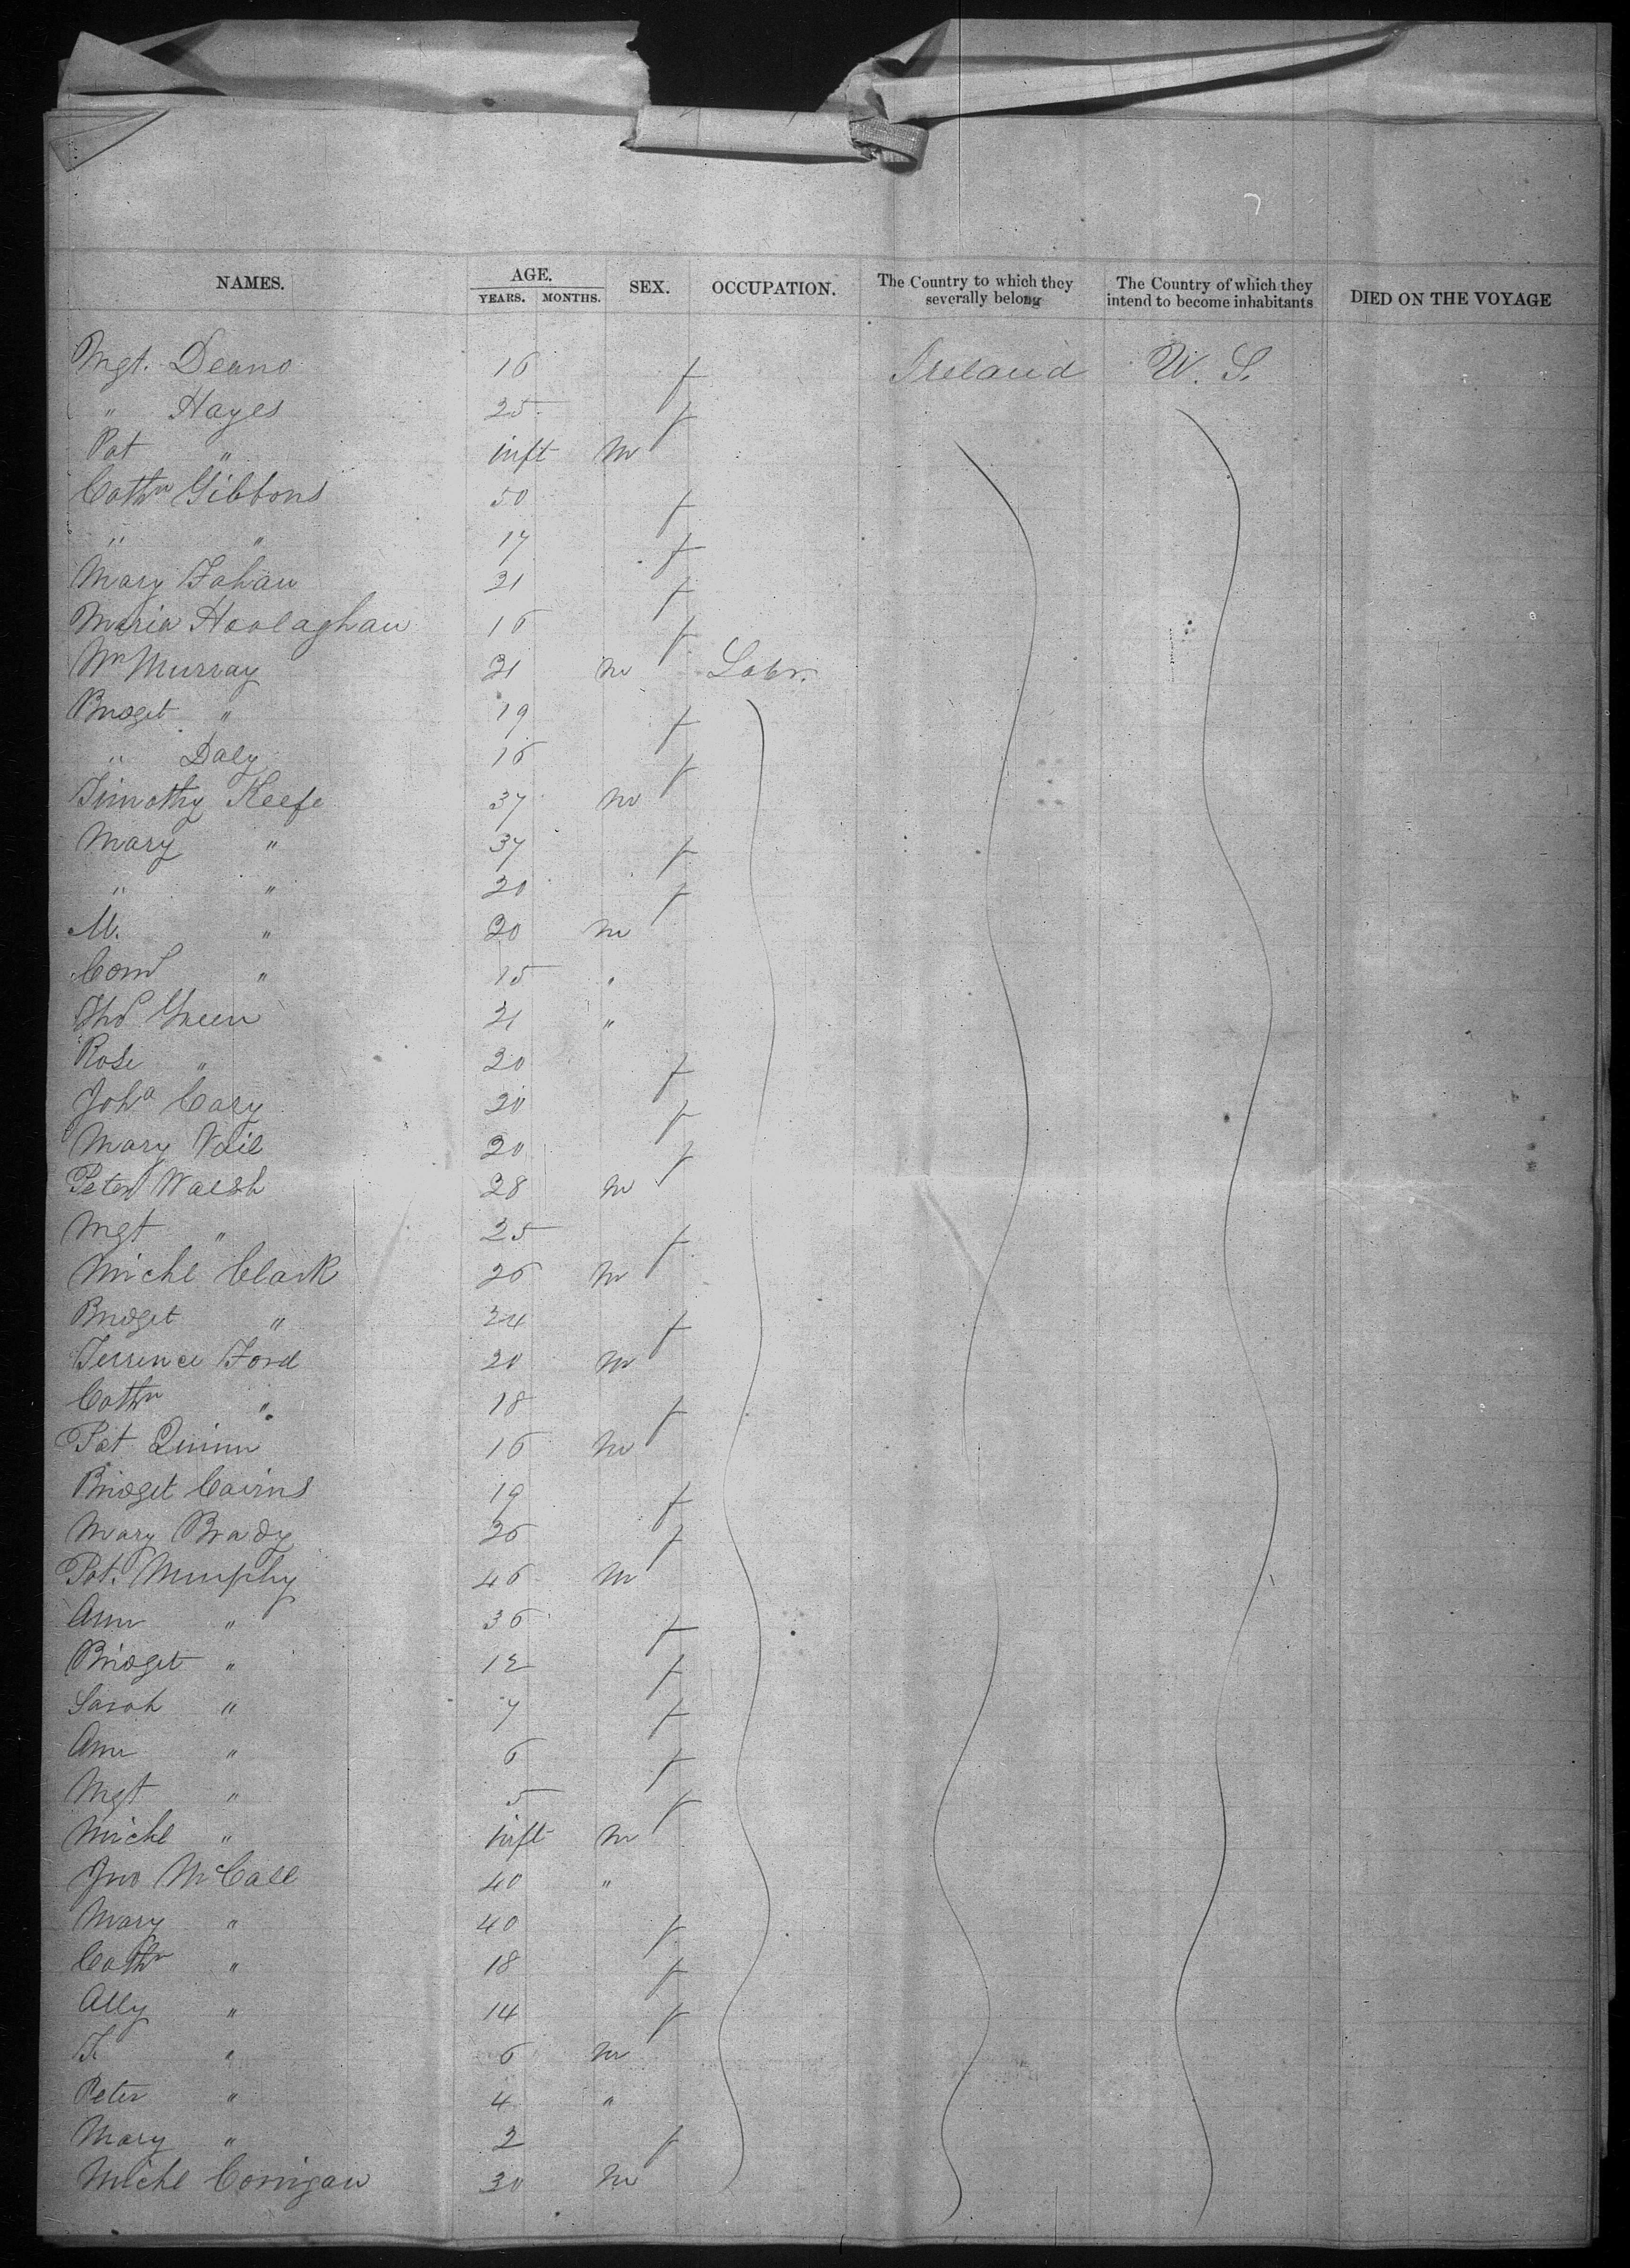 NAMES. AGE. YEARS. MONTHS. SEX. OCCUPATION. The Country to which they severally belong The Country of which they intend to become inhabitants DIED ON THE VOYAGE
Mgt. Deano 16 f Ireland U. S.
" Hayes 25 f
Pat " inft m
Cathn Gibbons 50 f
" " 17 f
Mary Fahan 21 f
Maria Hoolaghan 16 f
Wm Murray 21 m Labr.
Bridget " 19 f
" Daly 16 f
Timothy Keefe 37 m
Mary " 37 f
" " 20 f
M. " 20 m
Corns " 15 "
Thos Green 21 "
Rose " 20 f
Joha Cary 20 f
Mary Vail 20 f
Peter Walsh 28 m
Mgt " 25 f
Michl Clark 26 m
Bridget " 24 f
Terrence Ford 20 m
Cathn " 18 f
Pat Quinn 16 m
Bridget Cairns 19 f
Mary Brady 26 f
Pat. Murphy 46 m
Ann " 36 f
Bridget " 12 f
Sarah " 7 f
Ann " 6 f
Mgt " 5 f
Michl " inft m
Jno McCall 40 "
Mary " 40 f
Cathn " 18 f
Ally " 14 f
T. " 6 m
Peter " 4 "
Mary " 2 f
Michl Corrigan 30 m